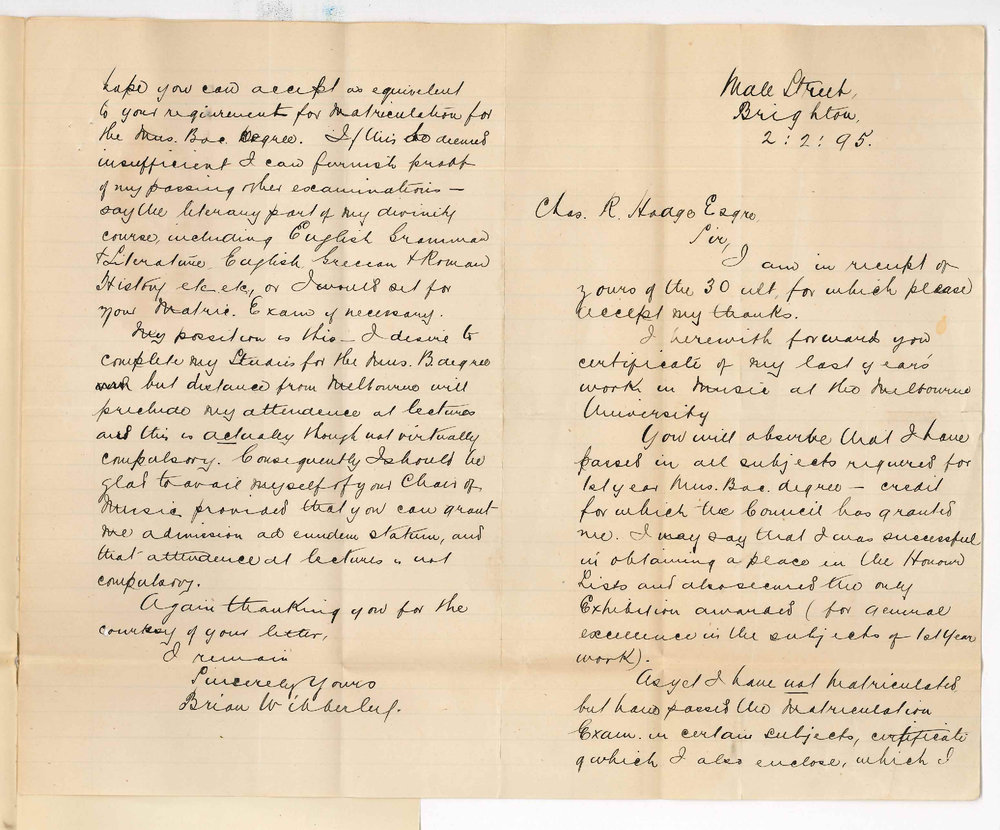 Male Street,
Brighton,
2:2:95.
Chas. R. Hodge Esqre,
Sir,
I am in receipt of
yours of the 30 ult. for which please
accept my thanks.
I herewith forward you
certificate of my last year's
work in Music at the Melbourne
University
You will observe that I have
passed in all subjects required for
1st year Mus. Bac. degree — credit
for which the Council has granted
me. I may say that I was successful
in obtaining a place in the Honour
Lists and also secured the only
Exhibition awarded (for general
excellence in the subjects of 1st Year
work).
As yet I have not Matriculated
but have passed the Matriculation
Exam. in certain subjects, certificate
of which I also enclose, which I
hope you can accept as equivalent
to your requirement for Matriculation for
the Mus. Bac. degree. If this be deemed
insufficient I can furnish proof
of my passing other examinations —
say the literary part of my divinity
course, including English Grammar
& Literature, English Grecian & Roman
History etc etc, or I would sit for
your Matric. Exam if necessary.
My position is this — I desire to
complete my Studies for the Mus. B degree
but distance from Melbourne will
preclude my attendence at lectures
and this is actually though not virtually
compulsory. Consequently I should be
glad to avail myself of your Chair of
Music provided that you can grant
me admission ad eundem statum, and
that attendence at lectures is not
compulsory.
Again thanking you for the
courtesy of your letter,
I remain
Sincerely Yours
Brian Wibberley.